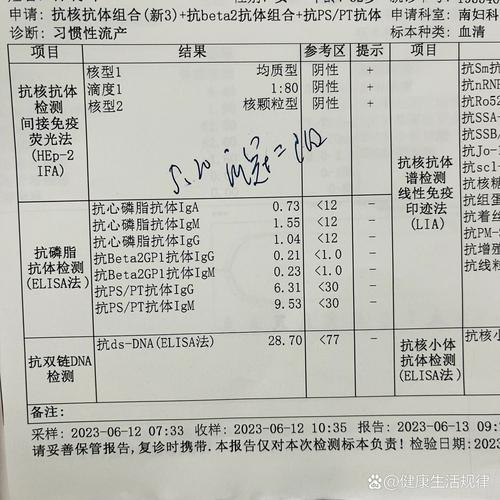 申请: 抗核抗体组合(新3)+抗beta2抗体组合+抗PS/PT抗体 申请: 南妇科
诊断: 习惯性流产 标本种类: 血清
项目 结果 参考区 提示 项目
抗核抗体检测间接免疫荧光法(HEp-2 IFA)
核型1 均质型 阴性 +
滴度1 1:80 阴性 +
核型2 核颗粒型 阴性 +
抗磷脂抗体检测(ELISA法)
抗心磷脂抗体IgA 0.73 <12 −
抗心磷脂抗体IgM 1.55 <12 −
抗心磷脂抗体IgG 1.04 <12 −
抗Beta2GP1抗体IgG 0.21 <1.0 −
抗Beta2GP1抗体IgM 0.23 <1.0 −
抗PS/PT抗体IgG 6.31 <30 −
抗PS/PT抗体IgM 9.53 <30 −
抗双链DNA检测
抗ds-DNA(ELISA法) 28.70 <77 −
抗核抗体谱检测线性免疫印迹法(LIA)
抗Sm抗
抗nRNP
抗Ro52
抗SSA-
抗SSB
抗Jo-
抗scl-
抗核糖
抗组蛋
抗着丝
抗PM-S
抗增殖
抗线粒
抗核小体抗体检测(ELISA法)
抗核小体
备注:
采样: 2023-06-12 07:33 收样: 2023-06-12 10:35 报告: 2023-06-13 09:
请妥善保管报告,复诊时携带.本报告仅对本次检测标本负责! 检验日期: 2023
健康生活规律